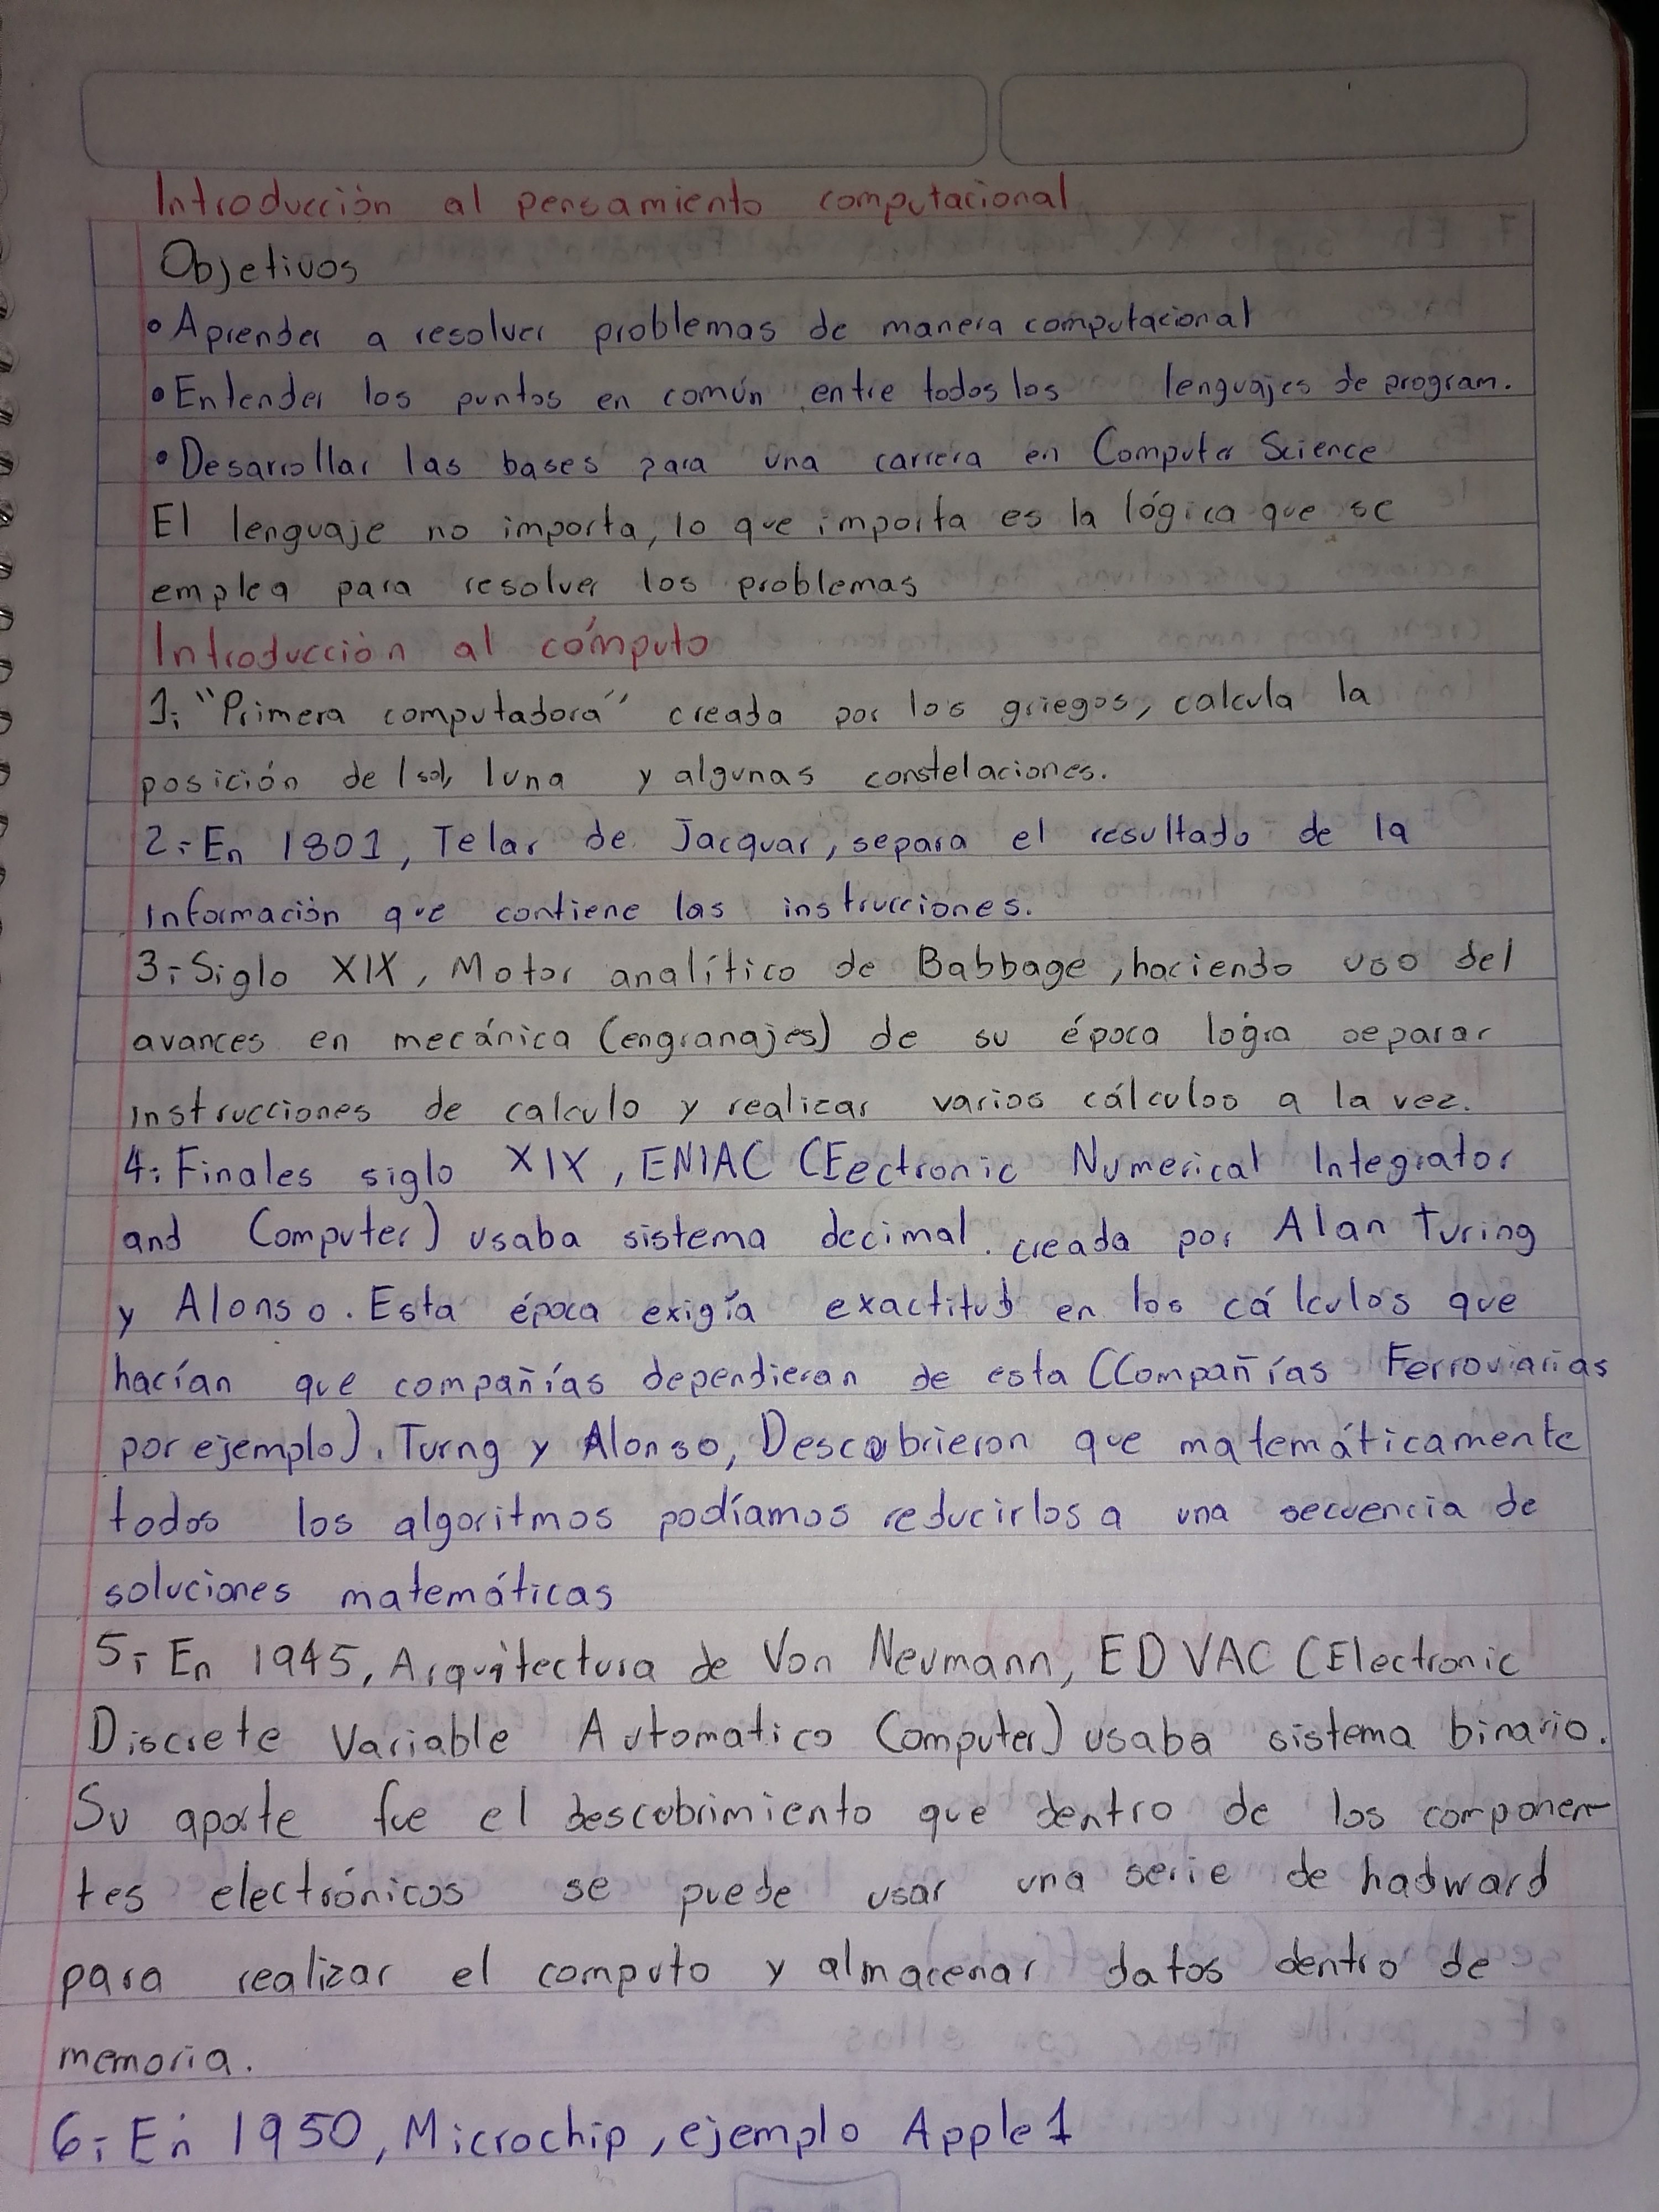 Introducción al pensamiento computacional
Objetivos
• Aprender a resolver problemas de manera computacional
• Entender los puntos en común entre todos los lenguajes de program.
• Desarrollar las bases para una carrera en Computer Science
El lenguaje no importa, lo que importa es la lógica que se
emplea para resolver los problemas
Introducción al cómputo
1.- "Primera computadora" creada por los griegos, calcula la
posición del sol, luna y algunas constelaciones.
2.- En 1801, Telar de Jacquar, separa el resultado de la
información que contiene las instrucciones.
3.- Siglo XIX, Motor analítico de Babbage, haciendo uso del
avances en mecánica (engranajes) de su época logra separar
instrucciones de calculo y realizar varios cálculos a la vez.
4.- Finales siglo XIX, ENIAC (Eectronic Numerical Integrator
and Computer) usaba sistema decimal. creada por Alan Turing
y Alonso. Esta época exigía exactitud en los cálculos que
hacían que compañías dependieran de esta (Compañías Ferroviarias
por ejemplo). Turng y Alonso, Descubrieron que matemáticamente
todos los algoritmos podíamos reducirlos a una secuencia de
soluciones matemáticas
5.- En 1945, Arquitectura de Von Neumann, EDVAC (Electronic
Discrete Variable Automatico Computer) usaba sistema binario.
Su aporte fue el descubrimiento que dentro de los componen-
tes electrónicos se puede usar una serie de hadward
para realizar el computo y almacenar datos dentro de
memoria.
6.- En 1950, Microchip, ejemplo Apple 1